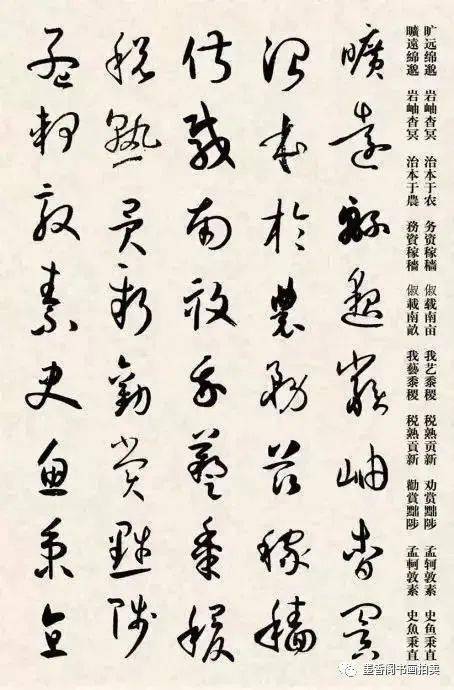 旷远绵邈 岩岫杳冥 治本于农 务资稼穑 俶载南亩 我艺黍稷 税熟贡新 劝赏黜陟 孟轲敦素 史鱼秉直
曠遠綿邈 岩岫杳冥 治本于農 務資稼穡 俶載南畝 我藝黍稷 税熟貢新 勸賞黜陟 孟軻敦素 史魚秉直
曠遠緜邈巖岫杳冥
治本於農務茲稼穡
俶載南畝我藝黍稷
稅熟貢新勸賞黜陟
孟軻敦素史魚秉直
墨香阁书画拍卖